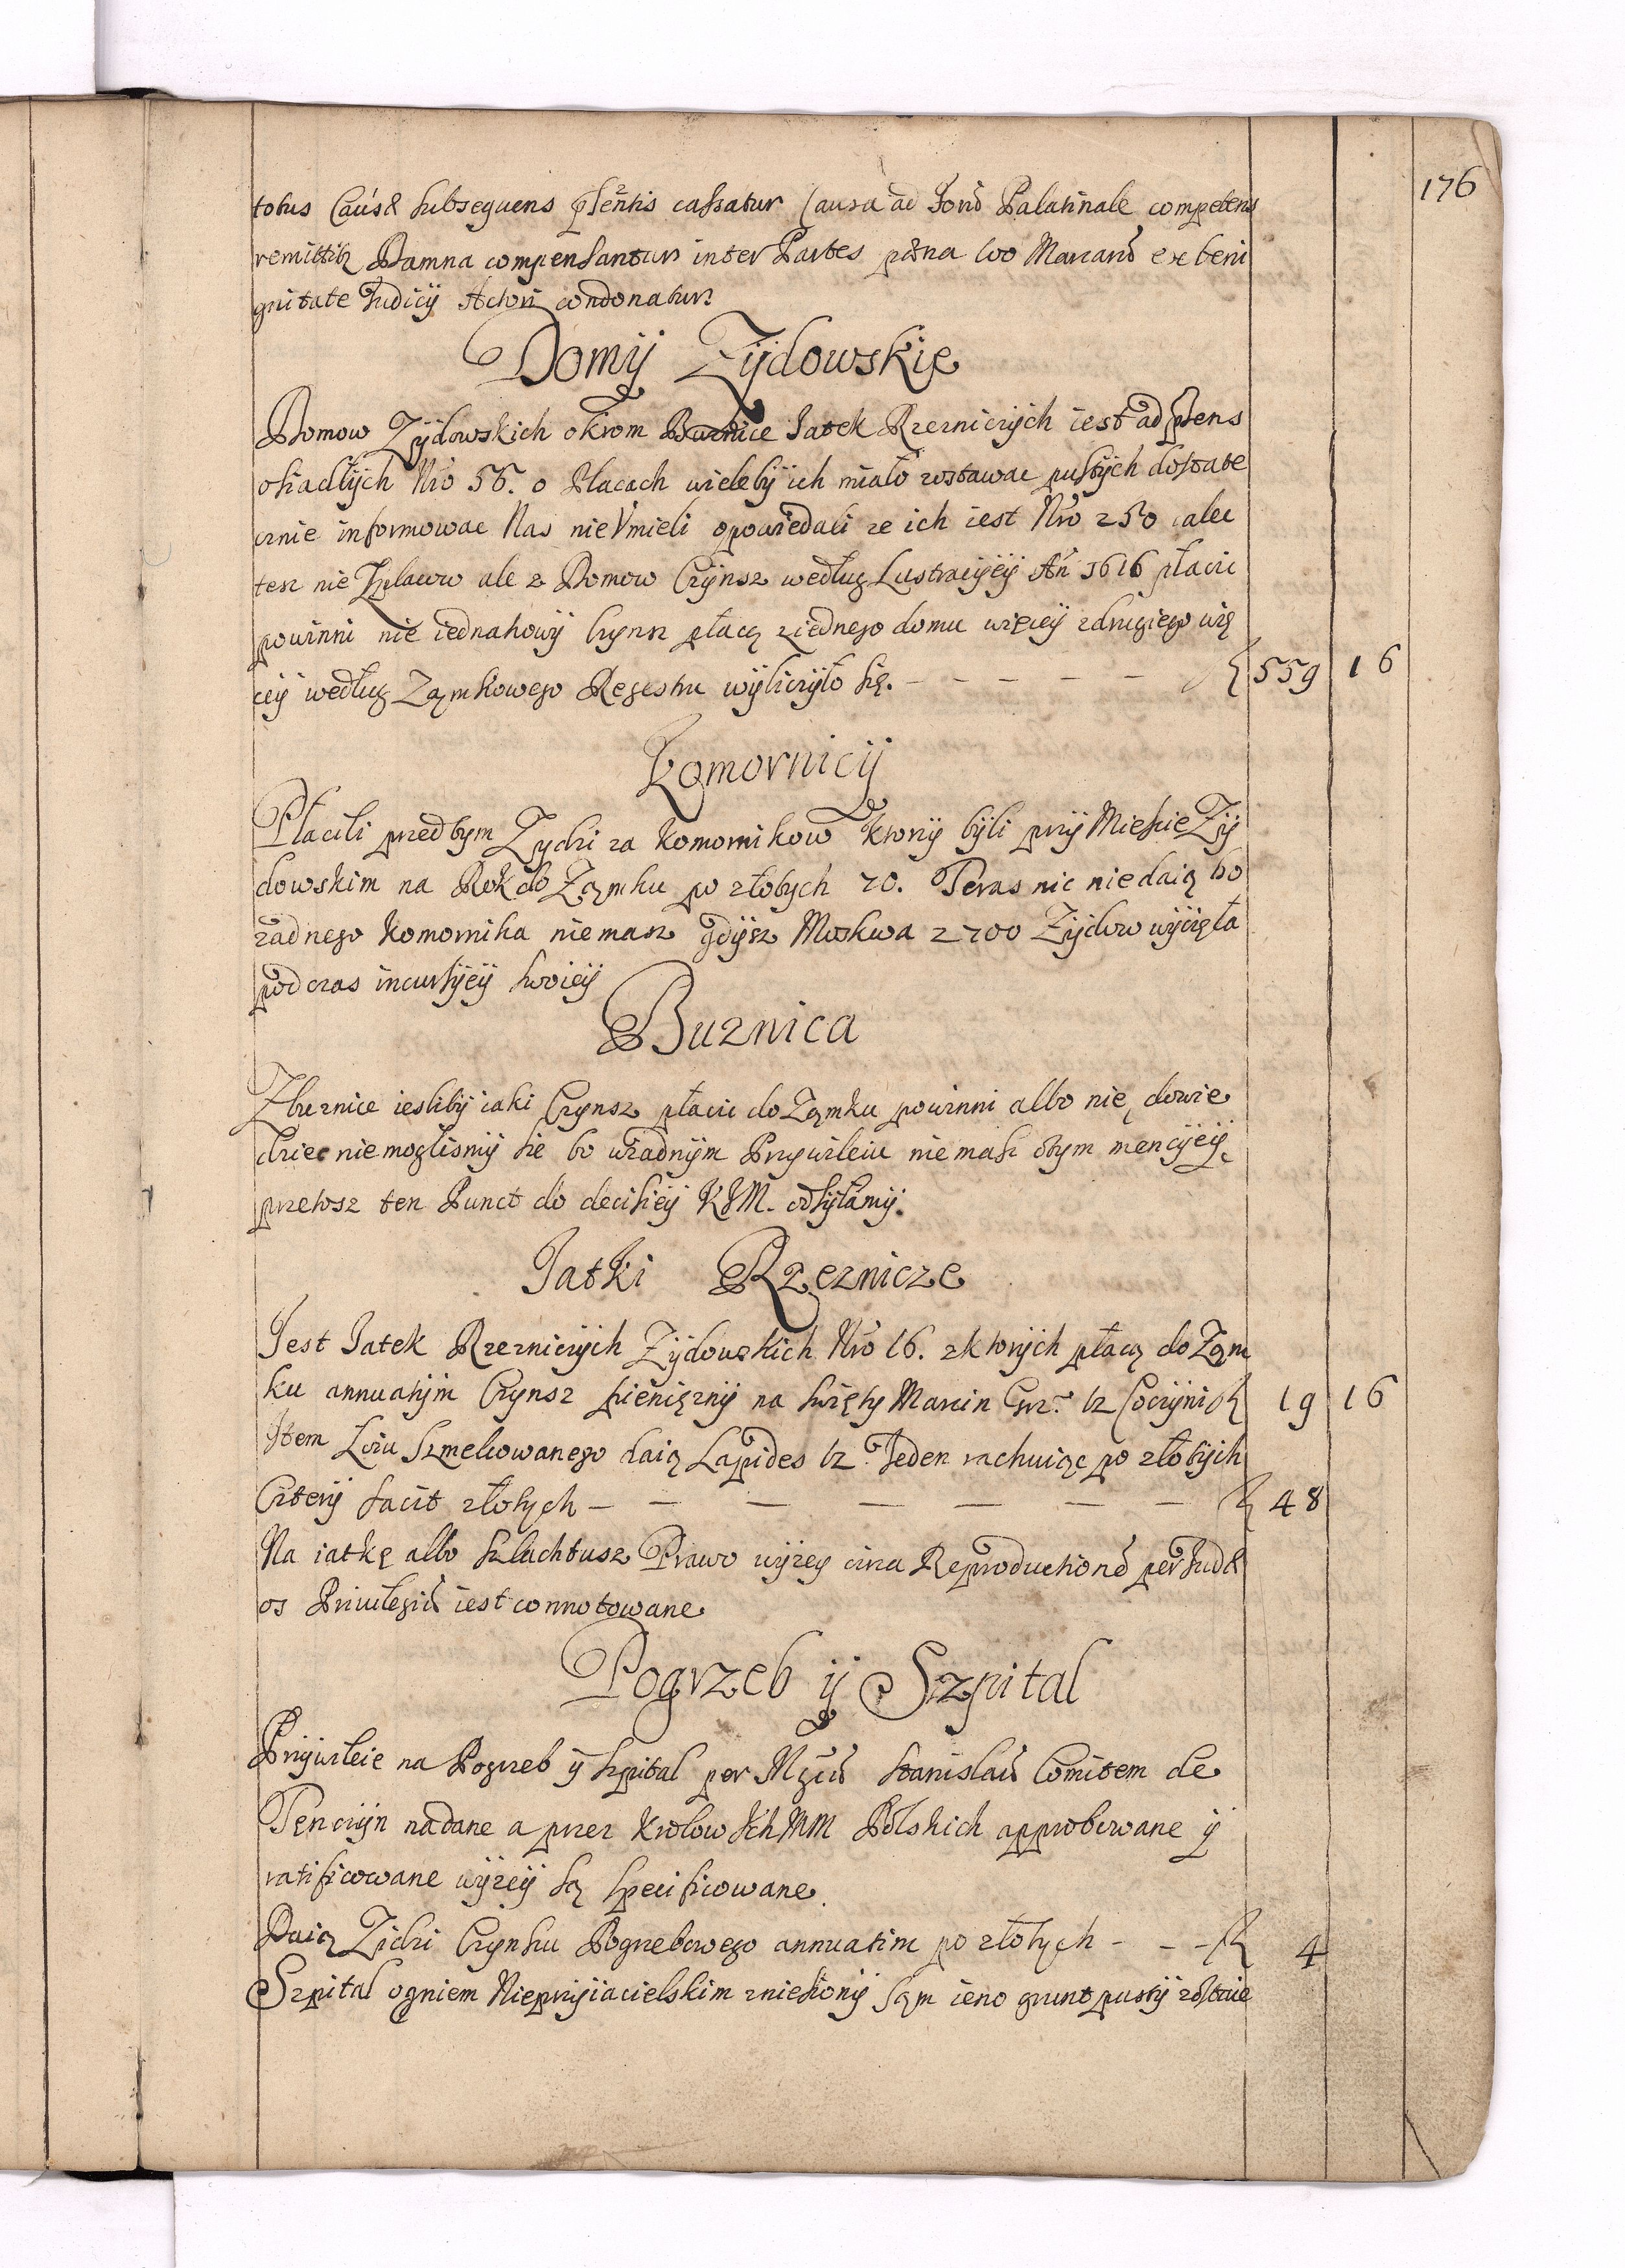 176
totus Causæ subsequens pñtis cassatur Causa ad Forũ Palatinale competens
remittitq Damna compensantur inter Partes pæna 100 Marcarũ ex beni
gnitate Iudicij Actori condonatur
Domÿ Zÿdowskie
Domow Zÿdowskich okrom Buznice Iatek Rzeznicżych iest ad præns
osiadłÿch Nro 56. o Placach wielebÿ ich miało zostawac pustÿch dostate
cznie informowac Nas nie Vmieli opowiedali ze ich iest Nro 250 calec
tesz nie Zplacow ale z Domow Czÿnsz według Lustracÿeÿ An 1616 płacic
powinni nie iednakowÿ Czynsz płacą z iednego domu więceÿ z drugiego wię
ceÿ według Zamkowego Regestru wÿliczÿło się. 559 16
Komornicÿ
Płacili przed tym Zydzi za Komornikow Ktorzÿ bÿli przÿ Miescie Zÿ
dowskim na Rok do Zamku po złotych 20. Teras nic nie daią bo
zadnego Komornika niemasz gdÿsz Moskwa 2700 Zÿdow wÿcięła
podczas incursÿeÿ swoieÿ
Buznica
Z buznice iesliby iaki Czynsz płacic do Zamku powinni albo nie, dowie
dziec nie moglismÿ sie bo w zadnÿm Przywileiu nie masz o tym mencÿeÿ
przetosz ten Punct do decisieÿ KJM. odsÿłamÿ.
Iatki Rzeznicze
Iest Iatek Rzeznicżÿch Zÿdowskich Nro 16. z ktorÿch płacą do Zam
ku annuatÿm Czynsz pieniężnÿ na swiętÿ Marcin Gr. 12 Coczÿni 19 16
Item Łoiu Szmelcowanego daią Lapides 12. Ieden rachuiąc po złotÿch
Czterÿ facit złotych 48
Na iatkę albo Szlachtusz Prawo wÿzey circa Reproductionẽ per Iudæ
os Priuilegiũ iest connotowane
Pogrzeb ÿ Szpital
Przÿwileie na Pogrzeb ÿ Szpital per Mgcũ Stanislaũ Comitem de
Tenczÿn nadane a przez Krolow IchMM Polskich approbowane ÿ
ratificowane wÿzeÿ są specificowane
Daią Zidzi Czynszu Pogrzebowego annuatim po złotych 4
Szpital ogniem Nieprzÿiacielskim zniesionÿ sąm ieno grunt pustÿ zostaie